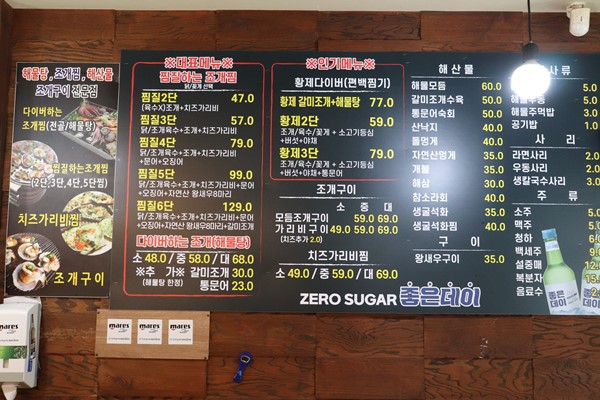 해물탕, 조개찜, 해산물
조개구이 전문점
다이버하는
조개찜(전골/해물탕)
찜질하는조개찜
(2단,3단,4단,5단찜)
치즈가리비찜
조개구이
※대표메뉴※
찜질하는 조개찜
닭/꽃게 선택
찜질2단 47.0
(육수X)조개+치즈가리비
찜질3단 57.0
닭/조개육수+조개+치즈가리비
찜질4단 79.0
닭/조개육수+조개+치즈가리비
+문어+오징어
찜질5단 99.0
닭/조개육수+조개+치즈가리비+문어
+오징어+자연산 왕새우8마리
찜질6단 129.0
닭/조개육수+조개+치즈가리비+문어
+오징어+자연산 왕새우8마리+갈미조개
다이버하는 조개(해물탕)
소 48.0 / 중 58.0 / 대 68.0
※추 가※ 갈미조개 30.0
(해물탕 한정) 통문어 23.0
※인기메뉴※
황제다이버(편백찜기)
황제 갈미조개+해물탕 77.0
황제2단 59.0
조개/육수/꽃게 + 소고기등심
+버섯+야채
황제3단 79.0
조개/육수/꽃게 + 소고기등심
+버섯+야채+통문어
조개구이
소 중 대
모듬조개구이 59.0 69.0
가리비구이 49.0 59.0 69.0
(치즈추가 2.0)
치즈가리비찜
소 49.0 / 중 59.0 / 대 69.0
ZERO SUGAR 좋은데이
해 산 물
해물모듬 60.0
갈미조개수육 50.0
통문어숙회 50.0
산낙지 40.0
돌멍게 40.0
자연산멍게 35.0
개불 35.0
해삼 30.0
참소라회 40.0
생굴석화 35.0
생굴석화찜 40.0
구 이
왕새우구이 35.0
사 류
5.0
해물주먹밥 3.0
공기밥 1.0
사 리
라면사리 2.0
우동사리 2.0
생칼국수사리 3.0
주 류
소주
맥주
청하
백세주
설중매
복분자
음료수
좋은
데이
mares
mares
mares